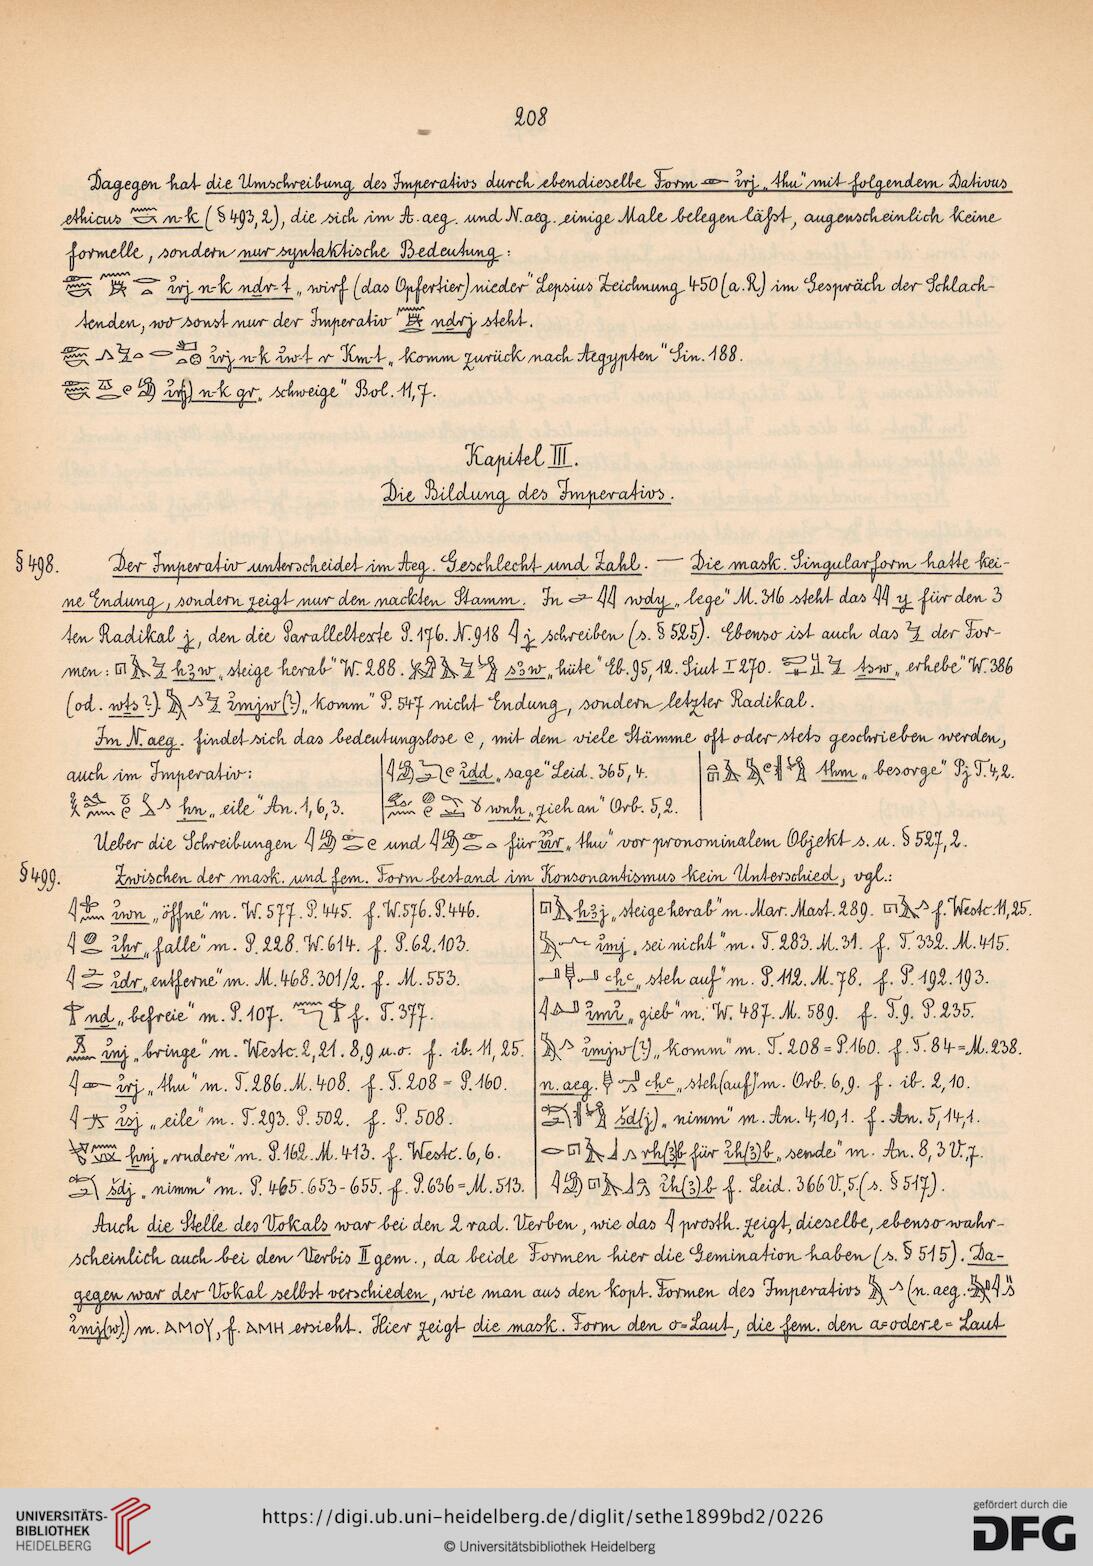 208
Dagegen hat die Umschreibung des Imperativs durch ebendieselbe Form irj „thu“ mit folgendem Dativus
ethicus n-k (§ 493,2), die sich im A.aeg. und N.aeg. einige Male belegen läßt, augenscheinlich keine
formelle, sondern nur syntaktische Bedeutung:
irj n-k ndr-t „wirf (das Opfertier) nieder“ Lepsius Zeichnung 450 (a.R) im Gespräch der Schlach-
tenden, wo sonst nur der Imperativ ndrj steht.
irj n-k iw-t r Km-t „komm zurück nach Aegypten“ Sin. 188.
ir(j) n-k gr „schweige“ Bol. 11,7.
Kapitel III.
Die Bildung des Imperativs.
§ 498. Der Imperativ unterscheidet im Aeg. Geschlecht und Zahl. — Die mask. Singularform hatte kei-
ne Endung, sondern zeigt nur den nackten Stamm. In wdy „lege“ M. 316 steht das y für den 3
ten Radikal j, den die Paralleltexte P. 176. N. 918 j schreiben (s. § 525). Ebenso ist auch das der For-
men: hꜣw „steige herab“ W. 288. sꜣw „hüte“ Eb. 95,12. Siut I 270. tsw „erhebe“ W. 386
(od. wts?). imjw(?) „komm“ P. 547 nicht Endung, sondern letzter Radikal.
Im N.aeg. findet sich das bedeutungslose , mit dem viele Stämme oft oder stets geschrieben werden,
auch im Imperativ: idd „sage“ Leid. 365,4. thm „besorge“ Pj T. 4,2.
hn „eile“ An. 1,6,3. wnh „zieh an“ Orb. 5,2.
Ueber die Schreibungen und für iir „thu“ vor pronominalem Objekt s. u. § 527,2.
§ 499. Zwischen der mask. und fem. Form bestand im Konsonantismus kein Unterschied, vgl.:
iwn „öffne“ m. W. 577. P. 445. f. W. 576. P. 446.
ihr „falle“ m. P. 228. W. 614. f. P. 62. 103.
idr „entferne“ m. M. 468. 301/2. f. M. 553.
nd „befreie“ m. P. 107. f. T. 377.
inj „bringe“ m. Westc. 2,21. 8,9 u.o. f. ib. 11,25.
irj „thu“ m. T. 286. M. 408. f. T. 208 = P. 160.
isj „eile“ m. T. 293. P. 502. f. P. 508.
hnj „rudere“ m. P. 162. M. 413. f. Westc. 6,6.
šdj „nimm“ m. P. 465. 653-655. f. P. 636 = M. 513.
hꜣj „steige herab“ m. Mar. Mast. 289. f. Westc. 11,25.
imj „sei nicht“ m. T. 283. M. 31. f. T. 332. M. 415.
ꜥhꜥ „steh auf“ m. P. 112. M. 78. f. P. 192. 193.
imi „gieb“ m. W. 487. M. 589. f. T. 9. P. 235.
imjw(?) „komm“ m. T. 208 = P. 160. f. T. 84 = M. 238.
n.aeg. ꜥhꜥ „steh (auf)“ m. Orb. 6,9. f. ib. 2,10.
šd(j) „nimm“ m. An. 4,10,1. f. An. 5,14,1.
rh(ꜣ)b für ih(ꜣ)b „sende“ m. An. 8,3 V.,7.
ih(ꜣ)b f. Leid. 366 V.,5. (s. § 517).
Auch die Stelle des Vokals war bei den 2 rad. Verben, wie das prosth. zeigt, dieselbe, ebenso wahr-
scheinlich auch bei den Verbis II gem., da beide Formen hier die Gemination haben (s. § 515). Da-
gegen war der Vokal selbst verschieden, wie man aus den kopt. Formen des Imperativs (n.aeg.
imj(w)) m. ⲁⲙⲟⲩ, f. ⲁⲙⲏ ersieht. Hier zeigt die mask. Form den o=Laut, die fem. den a= oder e=Laut
UNIVERSITÄTS-
BIBLIOTHEK
HEIDELBERG
https://digi.ub.uni-heidelberg.de/diglit/sethe1899bd2/0226
© Universitätsbibliothek Heidelberg
gefördert durch die
DFG